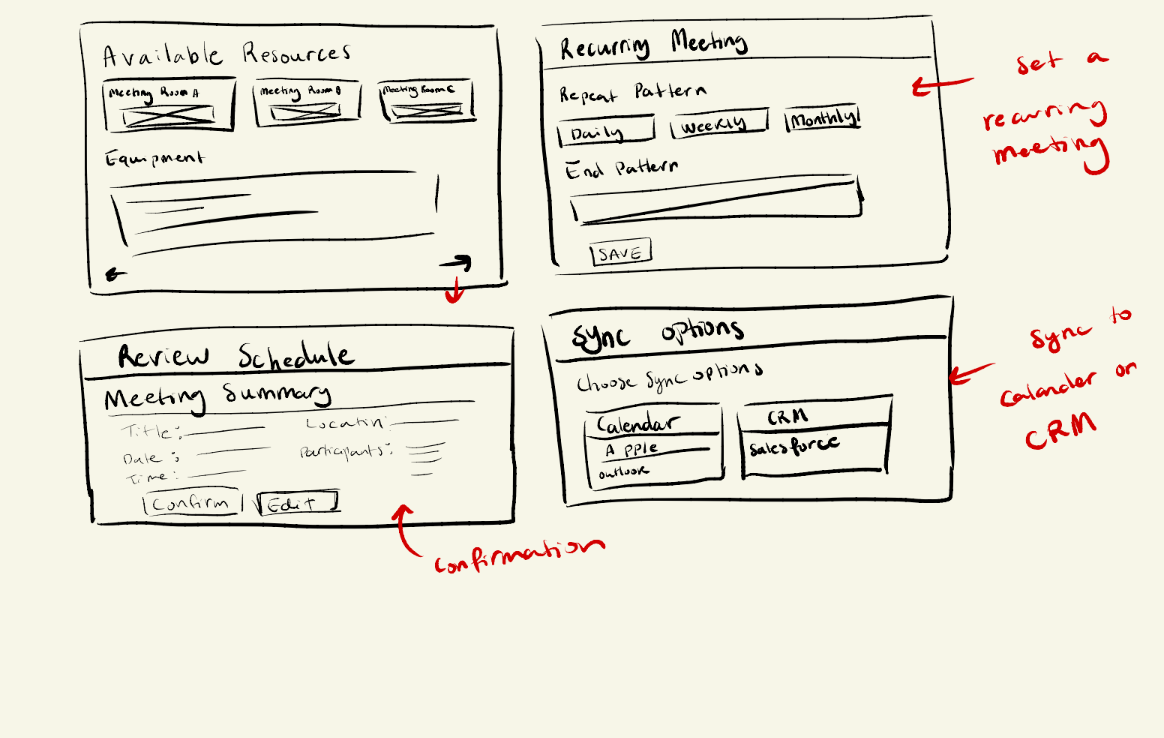 Available Resources
Meeting Room A
Meeting Room B
Meeting Room C
Equipment
Recurring Meeting
Repeat Pattern
Daily
Weekly
Monthly
End Pattern
SAVE
Set a
recurring
meeting
Review Schedule
Meeting Summary
Title:
Location:
Date:
Participants:
Time:
Confirm
Edit
Confirmation
Sync options
Choose Sync options
Calendar
Apple
outlook
CRM
Salesforce
Sync to
Calander or
CRM